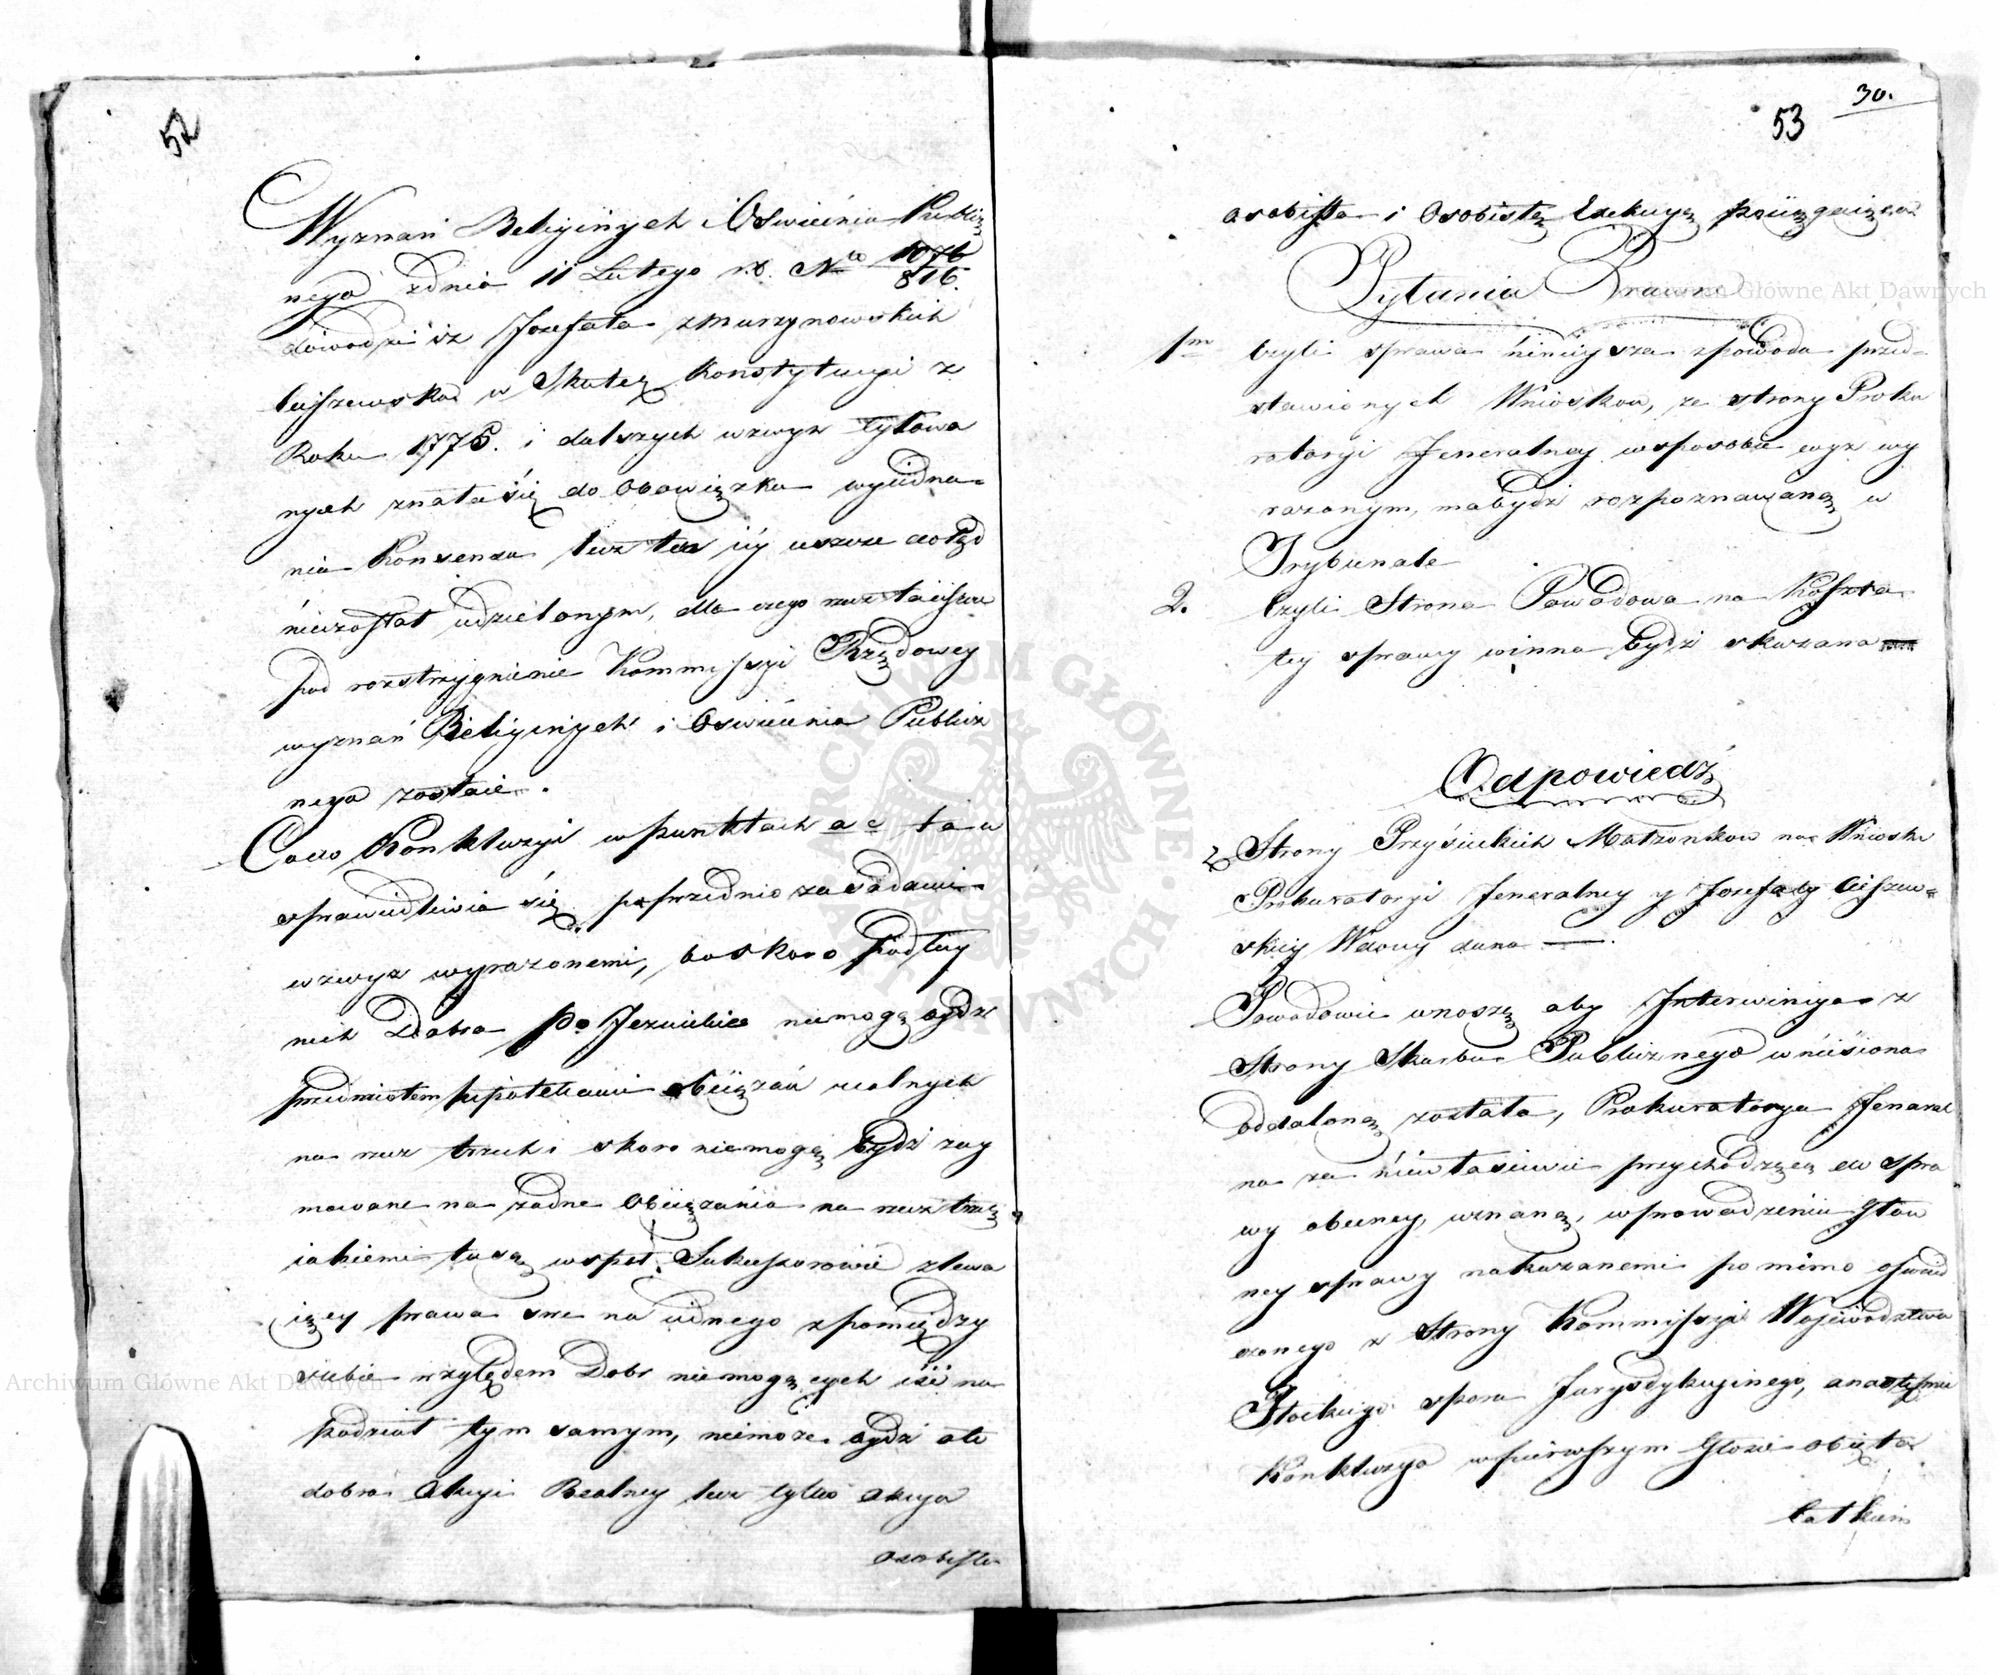 52
Wyznań Religiinych i Oswiecenia Publicz
nego zdnia 11 Lutego r.b. No 1076/816.
dowodzi iż Jozefata z Murzynowskich
Ciszewska w Skutek Konstytucyi z
Roku 1775. i dalszych wzwyż cytowa
nych znalaśię do obowiązku wyiedna-
nia Konsensu lecz ten iey ieszcze dotąd
niezostał udzielonym, dla czego rzecz ta ieszcze
pod rozstrzygnienie Kommissyi Rządowey
wyznań Religiinych i Oswiecenia Publicz
nego zostaie.
Co do Konkluzyi w punktach a c ta u
sprawiedliwia się poprzednio zasadami
wzwyż wyrazonemi, bo skoro podług
nich Dobra po Jezuickie niemogą bydź
przedmiotem hipotekami obciązań realnych
na rzecz trzech i skoro niemogą bydź zay
mowane na żadne obciązenia na rzecz trzecią
iakiemi tu są wspoł Sukcessorowie zlewa
iący prawa swe na iednego z pomiędzy
siebie względem Dobr niemogących iść na
podział tym samym, niemoże bydź ale
dobra Akcyi Realney lecz tylko Akcya
osobista
30.
53
osobista i Osobistą Exekucyą pociągaiąca
Pytania Prawne
1mo Czyli sprawa ninieysza zpowodu przed-
stawionych Wniosków, ze strony Proku
ratoryi Jeneralney wsposobie wyż wy
rażonym, ma bydź rozpoznawaną w
Trybunale
2. Czyli Strona Powodowa na Koszta
tey sprawy winna bydź skazana
Odpowiedź
z Strony Przysieckich Małżonkow na Wnioski
Prokuratoryi Jeneralney y Jozefaty Ciszew-
skiey Wdowy dana —.
Powodowie wnoszą aby Interwiniya z
Strony Skarbu Publicznego wniesiona
oddaloną została, Prokuratorya Jeneral
na za niewłasciwie przychodzącą do spra
wy obecney uznaną, wprowadzenie głow
ney sprawy nakazanem pomimo oswiad
czonego z Strony Kommissyi Woiewodztwa
Płockiego sporu Jurysdykcyinego, a nastęnie
Konkluzya wpierwszym Głosie obięta
całkiem